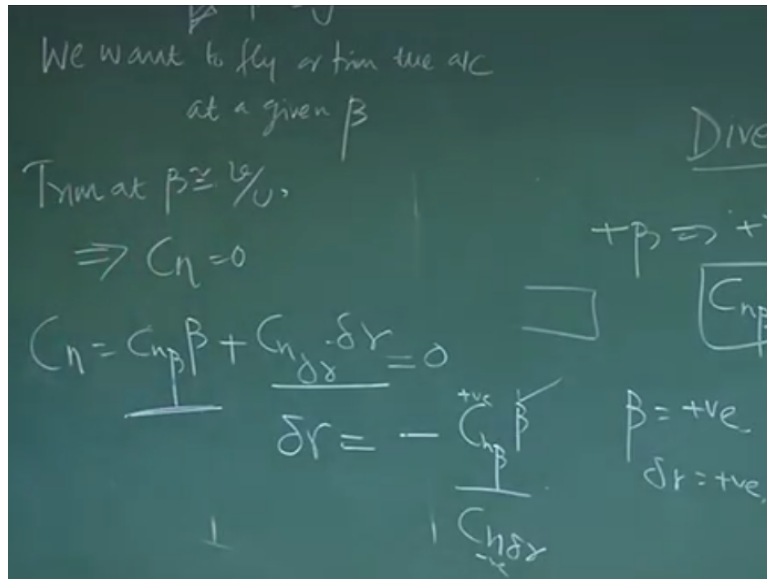 We want to fly or trim the a/c
at a given β
Trim at β ≅ v/U₀
⇒ Cn = 0
Cn = Cnβ β + Cnδr · δr = 0
δr = - Cnβ β / Cnδr
+ve
-ve
Dive
+β ⇒ +
Cnβ
β = +ve
δr = +ve